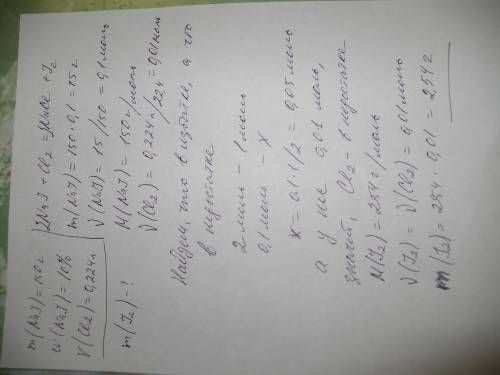 m(NaI)=150г
w(NaI)=10%
V(Cl2)=0,224л
m(I2)-?
2NaI + Cl2 = 2NaCl + I2
m(NaI)=150·0,1=15г
ν(NaI)=15/150=0,1моль
M(NaI)=150г/моль
ν(Cl2)=0,224л/22,4=0,01моль
Найдем, что в избытке, а что
в недостатке
2моль - 1моль
0,1моль - x
x=0,1·1/2=0,05моль
а у нас 0,01 моль,
значит, Cl2 - в недостатке
M(I2)=254г/моль
ν(I2)=ν(Cl2)=0,01моль
m(I2)=254·0,01=2,54г